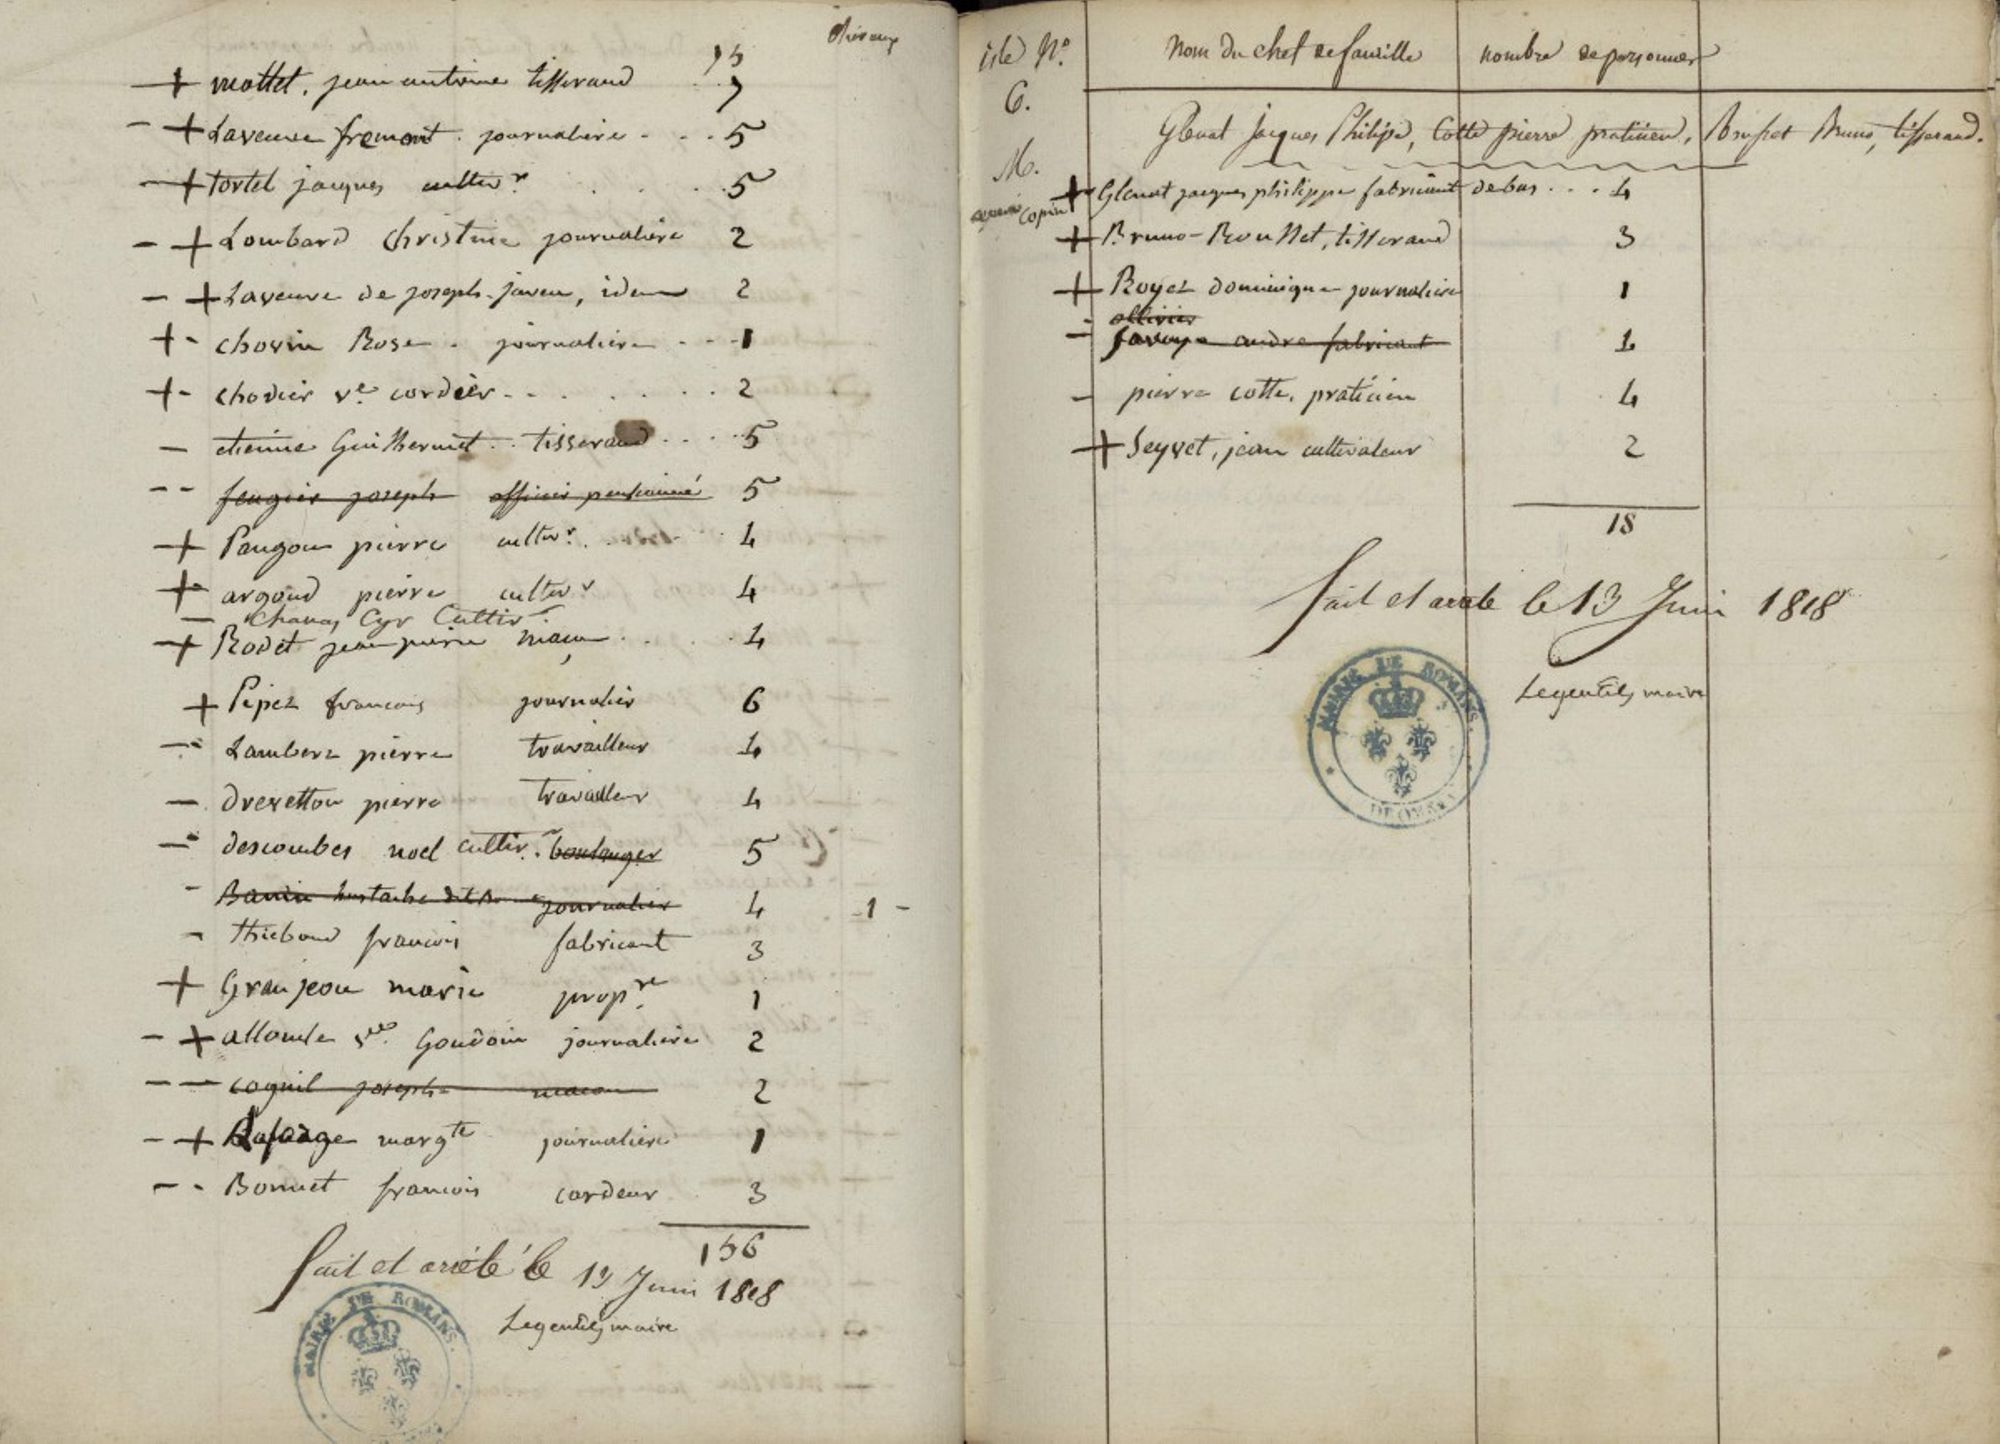 chevaux
75
+ mottet, jean antoine tisserand .. 7
- + La veuve fremont . journaliere - . . 5
- + tortel jacques cultivr . . . . 5
- + Lombard christine journaliere 2
- + La veuve de joseph javeu, idem 2
+ - chovin Rose . journaliere - - - 1
+ - chodier ve cordier - . . . . . . 2
- etienne Guilhermet . . tisserand . . . . 5
- - feugier joseph officier pensionné 5
+ Paugou pierre cultivr . . . . 4
+ - argoud pierre cultivr 4
- Chanas Cyr Cultivr
+ Rodet jean pierre maçon . . . . 4
+ Pipez francois journalier 6
- Lambert pierre travailleur 4
- drevetton pierre travailleur 4
- descombes noel cultivr . boulanger 5
- Bauin Eustache dit journalier 4 - 1 -
- thiebaud francois fabricant 3
+ Granjeou marie propre 1
- + allomle vve Goudoin journaliere 2
- - coquil joseph macon 2
- + Lafarge margte journaliere 1
- - Bonnet francois cordeur 3
156
fait et arrêté le 13 Juin 1818
Legentil, maire
MAIRIE DE ROMANS
isle No. Nom du chef de famille nombre de personnes
6.
Glenat jacques Philipe, Cotte pierre praticien, Brusset Bruno, tisserand.
M.
+ Glenat jacques philippe fabricant de bas . . . 4
copin
+ Bruno - Rousset, tisserand 3
+ Royez dominique journaliere 1
ollivier
- favoye andre fabricant 4
- pierre cotte, praticien 4
+ Seyvet, jean cultivateur 2
18
fait et arrete le 13 Juin 1818
Legentil, maire
MAIRIE DE ROMANS. DROME